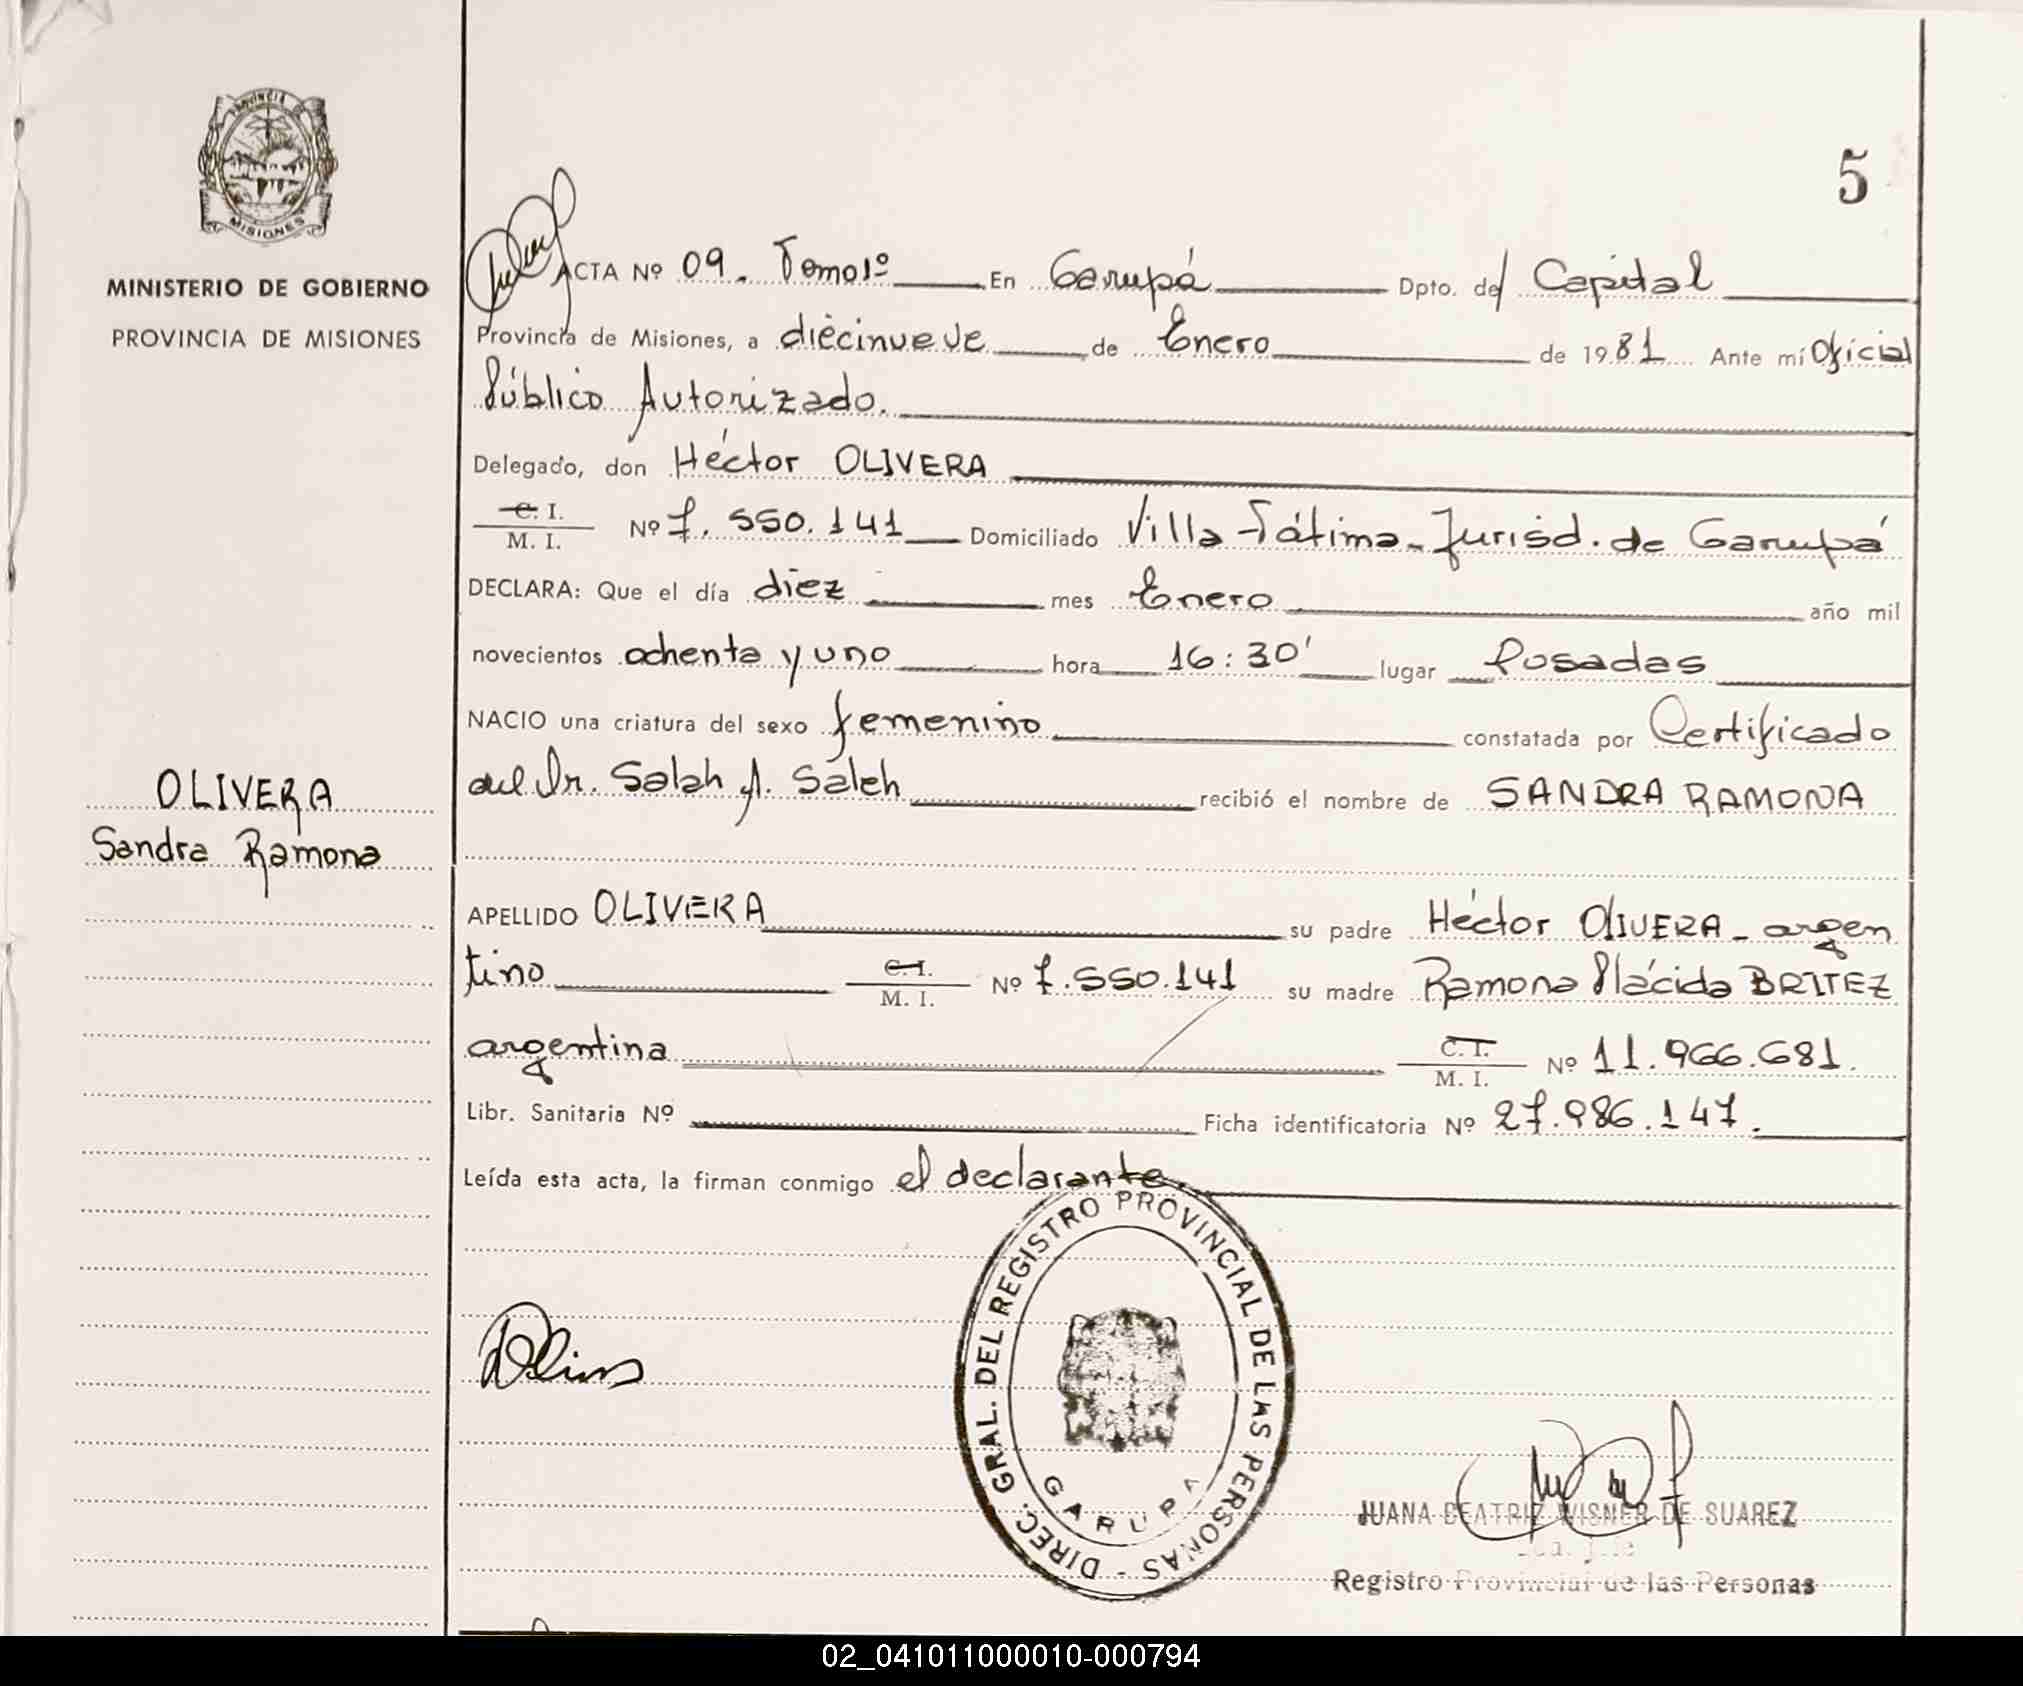 PROVINCIA DE
MISIONES
MINISTERIO DE GOBIERNO
PROVINCIA DE MISIONES
5
ACTA Nº 09. Tomo 1º En Garupá Dpto. del Capital
Provincia de Misiones, a diecinueve de Enero de 1981 Ante mí Oficial
Público Autorizado.
Delegado, don Héctor OLIVERA
C. I.
M. I. Nº 7.550.141 Domiciliado Villa Fátima - Jurisd. de Garupá
DECLARA: Que el día diez mes Enero año mil
novecientos ochenta y uno hora 16:30' lugar Posadas
NACIO una criatura del sexo femenino constatada por Certificado
del Dr. Salah A. Saleh recibió el nombre de SANDRA RAMONA
OLIVERA
Sandra Ramona
APELLIDO OLIVERA su padre Héctor OLIVERA - argen
tino C. I. M. I. Nº 7.550.141 su madre Ramona Plácida BRITEZ
argentina C. I. M. I. Nº 11.966.681.
Libr. Sanitaria Nº Ficha identificatoria Nº 27.986.147.
Leída esta acta, la firman conmigo el declarante.
DIREC. GRAL. DEL REGISTRO PROVINCIAL DE LAS PERSONAS -
GARUPA
JUANA BEATRIZ WISNER DE SUAREZ
Registro Provincial de las Personas
02_041011000010-000794